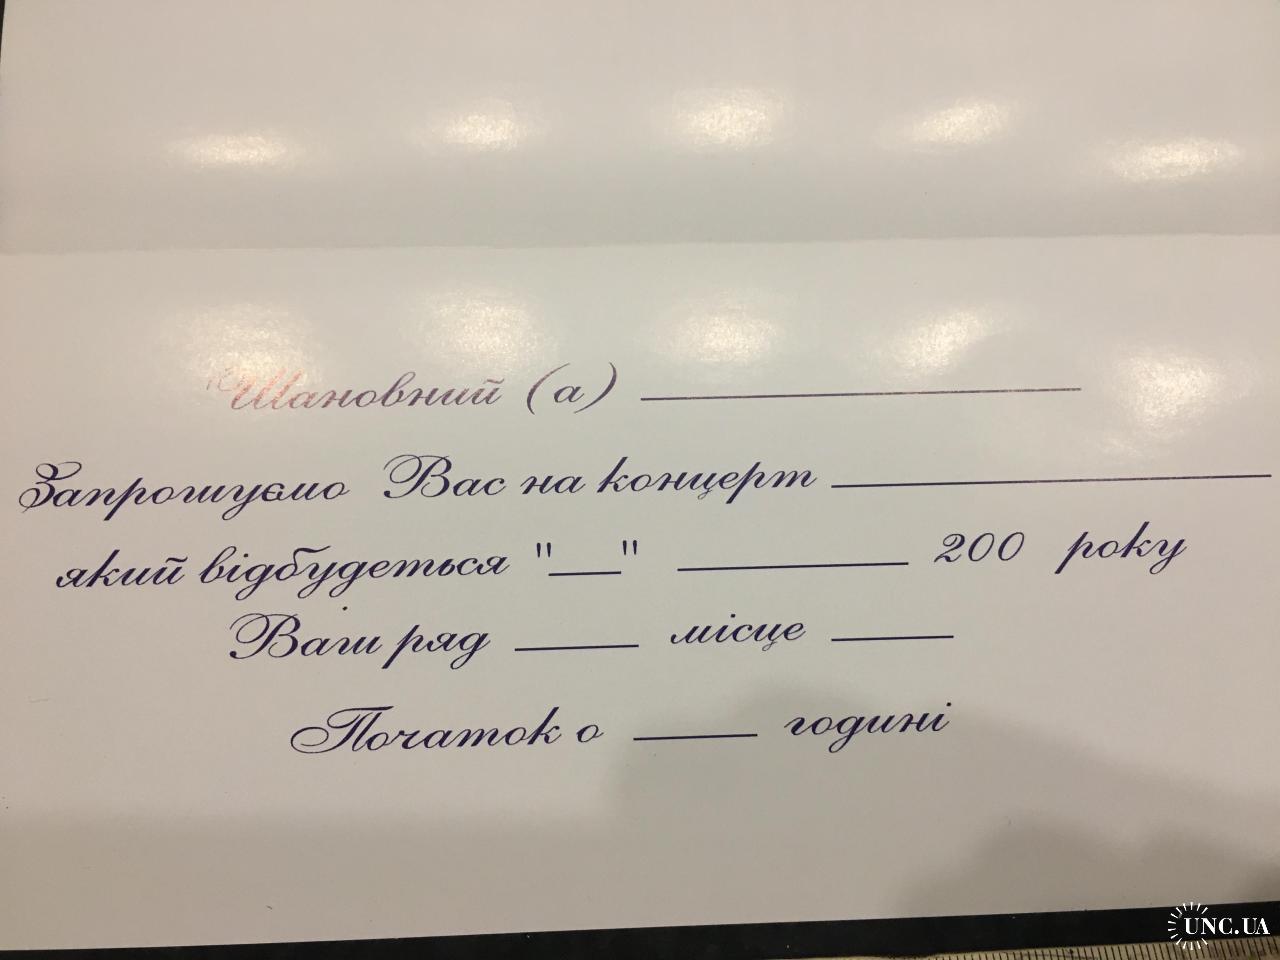 Шановний (а) ____________
Запрошуємо Вас на концерт ____________
який відбудеться "___" ________ 200 року
Ваш ряд ____ місце ____
Початок о ____ годині
UNC.UA